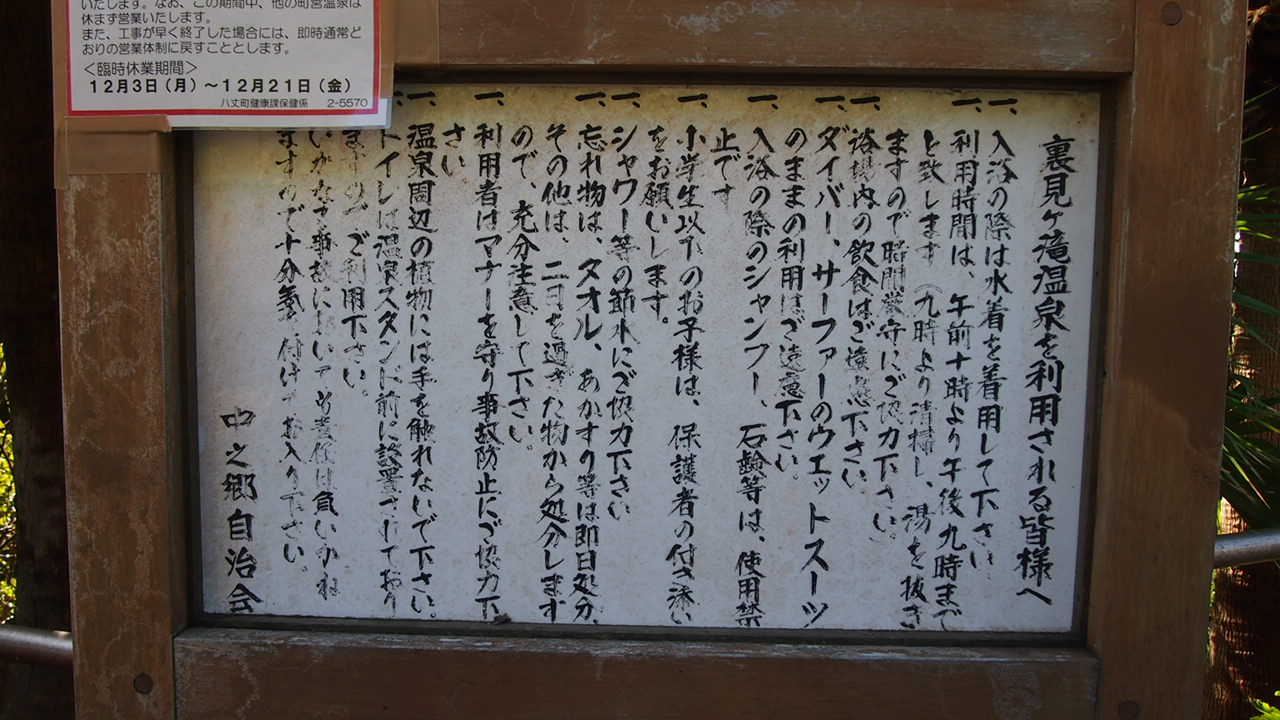 いたします。なお、この期間中、他の町営温泉は
休まず営業いたします。
また、工事が早く終了した場合には、即時通常ど
おりの営業体制に戻すこととします。
＜臨時休業期間＞
12月3日（月）～12月21日（金）
八丈町健康課保健係　2-5570
裏見ヶ滝温泉を利用される皆様へ
一、入浴の際は水着を着用して下さい
一、利用時間は、午前十時より午後九時まで
と致します（九時より清掃し、湯を抜き
ますので時間厳守にご協力下さい。）
一、浴場内の飲食はご遠慮下さい。
一、ダイバー、サーファーのウエットスーツ
のままの利用はご遠慮下さい。
一、入浴の際のシャンプー、石鹸等は、使用禁
止です
一、小学生以下のお子様は、保護者の付き添い
をお願いします。
一、シャワー等の節水にご協力下さい
一、忘れ物は、タオル、あかすり等は即日処分、
その他は、二日を過ぎた物から処分します
ので、充分注意して下さい。
一、利用者はマナーを守り事故防止にご協力下
さい
一、温泉周辺の植物には手を触れないで下さい。
トイレは温泉スタンド前に設置されており
ますので、ご利用下さい。
いかなる事故においても責任は負いかね
ますので十分気を付けてお入り下さい。
中之郷自治会